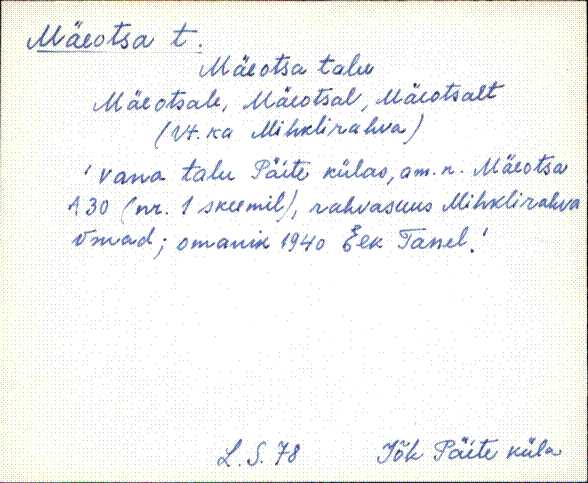 Mäeotsa t.
Mäeotsa talu
Mäeotsale, Mäeotsal, Mäeotsalt
(Vt. ka Mihklirahva)
' vana talu Päite külas, am. n. Mäeotsa
A 30 (nr. 1 skeemil), rahvasuus Mihklirahva
õmad; omanik 1940 Eek Tanel. '
L. S. 78 Jõh Päite küla